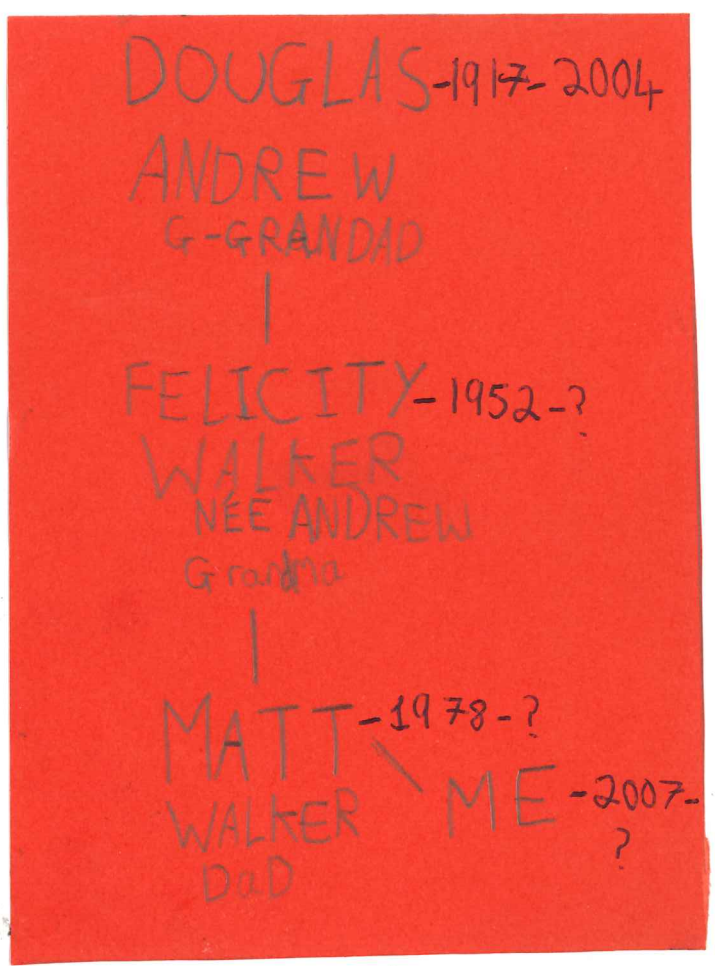 DOUGLAS -1917- 2004
ANDREW
G-GRANDAD
FELICITY -1952-?
WALKER
NÉE ANDREW
Grandma
MATT -1978-?
ME -2007-
?
WALKER
DaD